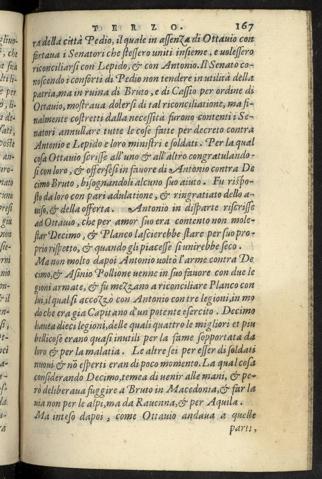 TERZO. 167
ra della città Pedio, il quale in assenza di Ottauio con
fortaua i Senatori che stessero uniti insieme, e uolessero
riconciliarsi con Lepido, & con Antonio. Il Senato co
noscendo i conforti di Pedio non tendere in utilità della
patria, ma in ruina di Bruto, e di Cassio per ordine di
Ottauio, mostraua dolersi di tal riconciliatione, ma fi-
nalmente costretti dalla necessità furono contenti i Se-
natori annullare tutte le cose fatte per decreto contra
Antonio e Lepido e loro ministri e soldati. Per la qual
cosa Ottauio scrisse all'uno & all'altro congratulando-
si con loro, & offersesi in fauore di Antonio contra De
cimo Bruto, bisognandoli alcuno suo aiuto. Fu rispo-
sto da loro con pari adulatione, & ringratiato dello a-
uiso, & della offerta. Antonio in disparte riscrisse
ad Ottauio, che per amor suo era contento non mole-
star Decimo, & Planco lascierebbe stare per suo pro-
prio rispetto, & quando gli piacesse si unirebbe seco.
Ma non molto dapoi Antonio uoltò l'arme contra De
cimo, & Asinio Pollione uenne in suo fauore con due le
gioni armate, & fu mezzano a riconciliare Planco con
lui, il qual si accozzò con Antonio con tre legioni, in mo
do che era gia Capitano d'un potente esercito. Decimo
haueua dieci legioni, delle quali quattro le migliori et piu
bellicose erano quasi inutili per la fame sopportata da
loro & per la malatia. Le altre sei per esser di soldati
nuoui & nō esperti eran di poco momento. La qual cosa
considerando Decimo, temea di uenir alle mani, & pe-
rò deliberaua fuggire a Bruto in Macedonia, & far la
uia non per le alpi, ma da Rauenna, & per Aquila.
Ma inteso dapoi, come Ottauio andaua a quelle
parti,